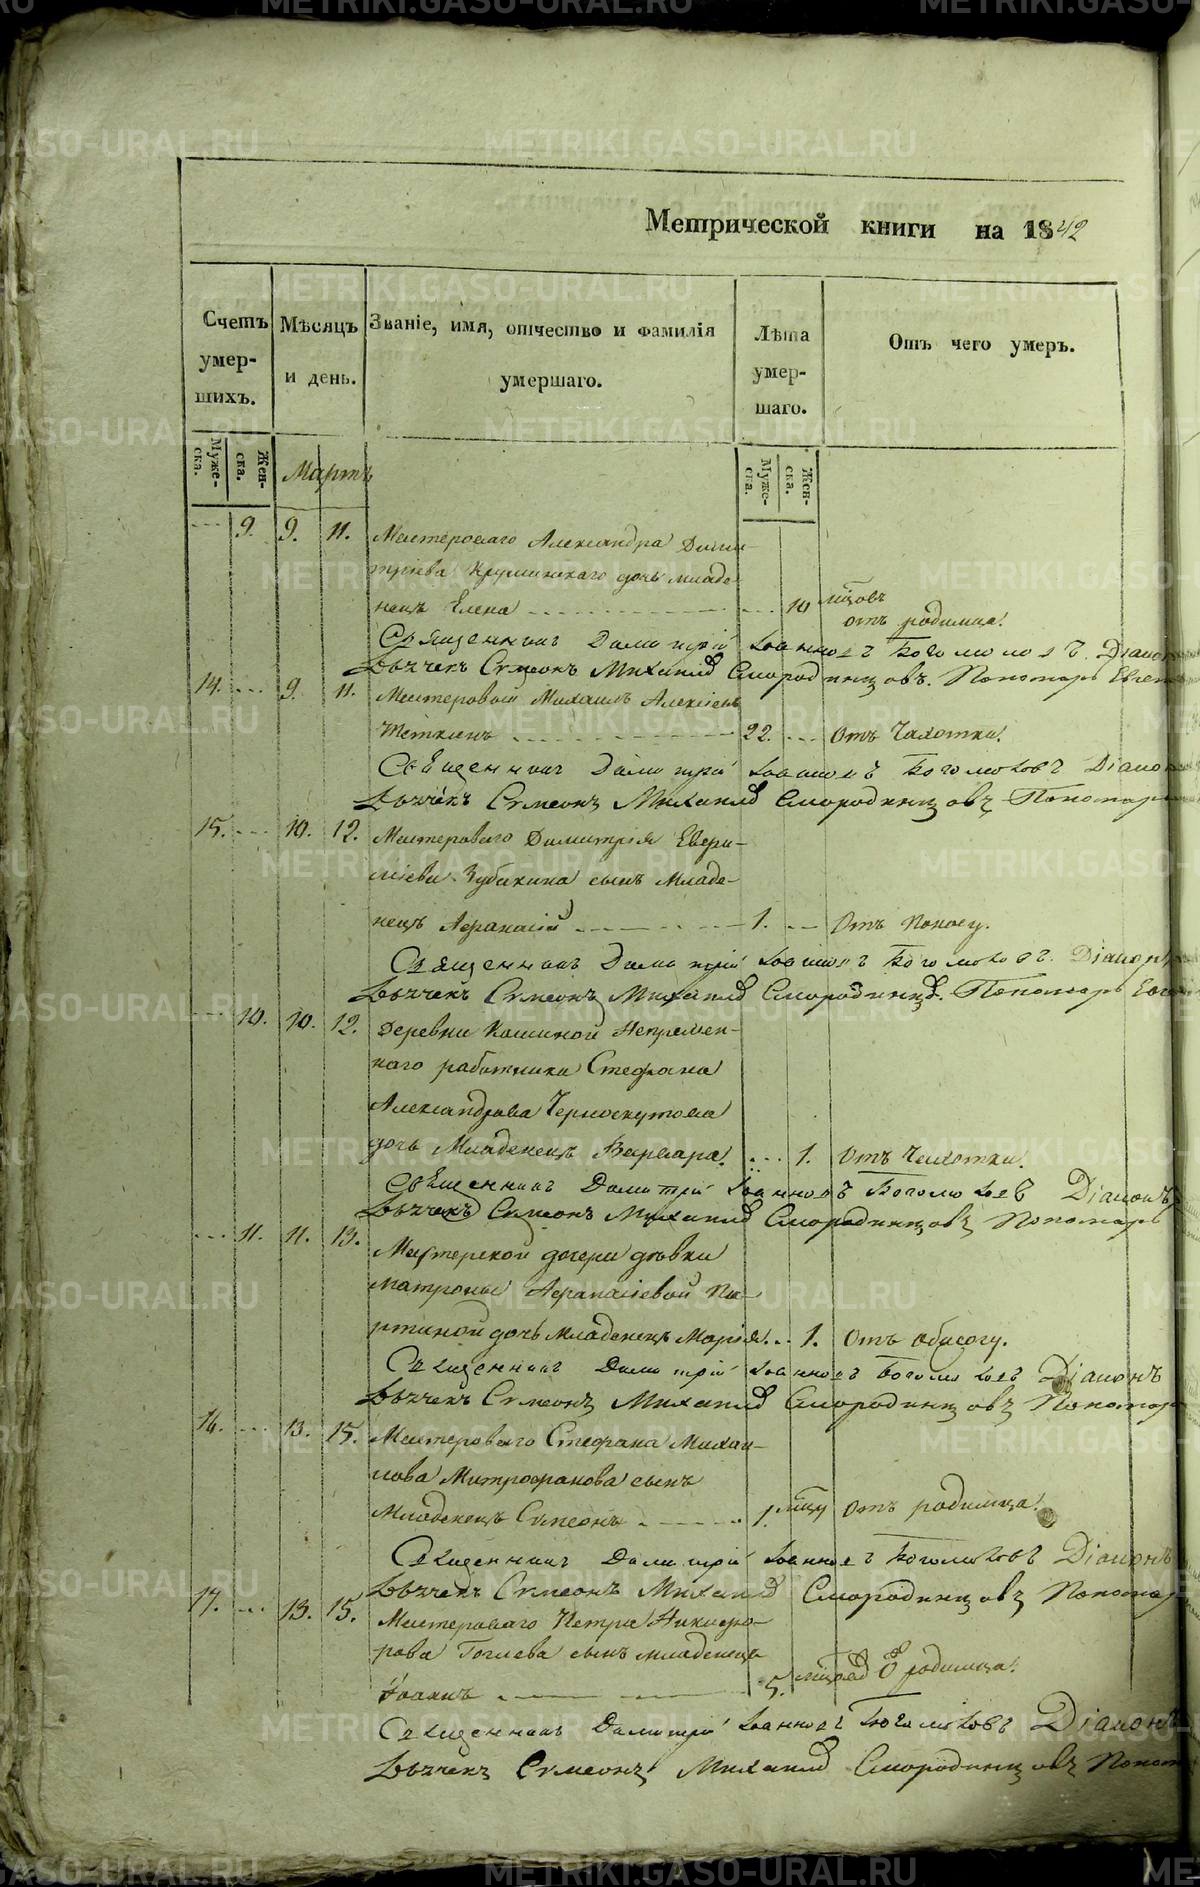 Метрической книги на 1842
Счетъ умер-шихъ.
Мѣсяцъ и день.
Званіе, имя, отчество и фамилія умершаго.
Лѣта умер-шаго.
Отъ чего умеръ.
Муже-ска.
Жен-ска.
Мартъ
Муже-ска.
Жен-ска.
9. 9. 11. Мастероваго Александра Дими-
тріева Круминскаго дочь младе-
нецъ Елена 10 мѣсцовъ
отъ родимца.
Священникъ Димитрій Іоанновъ Боголюбовъ. Діаконъ
Вячеславъ Симеонъ Михаилъ Смородинцовъ. Пономарь Евген
14. 9. 11. Мастеровой Михаилъ Алексѣевъ
Щеткинъ 22. Отъ Чахотки.
Священникъ Димитрій Іоанновъ Боголюбовъ Діаконъ
Симеонъ Михаилъ Смородинцовъ Пономарь
15. 10. 12. Мастероваго Димитрія Евфи-
міева Зубакина сынъ Младе-
нецъ Афанасій 1. Отъ Поносу.
Священникъ Димитрій Іоанновъ Боголюбовъ. Діаконъ
Симеонъ Михаилъ Смородинцовъ. Пономарь
10. 10. 12. Деревни Кашиной Непремен-
наго работника Стефана
Александрова Черноскутова
дочь Младенецъ Варвара. 1. Отъ Чахотки.
Священникъ Димитрій Іоанновъ Боголюбовъ Діаконъ
Симеонъ Михаилъ Смородинцовъ Пономарь
11. 11. 13. Мастерской дочери дѣвки
Матроны Афанасіевой Па-
ртиной дочь младенецъ Марія. 1. Отъ
Священникъ Димитрій Іоанновъ Боголюбовъ Діаконъ
Симеонъ Михаилъ Смородинцовъ Пономарь
16. 13. 15. Мастероваго Стефана Михаи-
лова Митрофанова сынъ
Младенецъ Симеонъ 1. мѣсцу отъ родимца.
Священникъ Димитрій Іоанновъ Боголюбовъ Діаконъ
Симеонъ Михаилъ Смородинцовъ Пономарь
17. 13. 15. Мастероваго Петра Никифо-
рова Гоглева сынъ младенецъ
Іоаннъ 5. отъ родимца.
Священникъ Димитрій Іоанновъ Боголюбовъ Діаконъ
Симеонъ Михаилъ Смородинцовъ Пономарь
METRIKI.GASO-URAL.RU